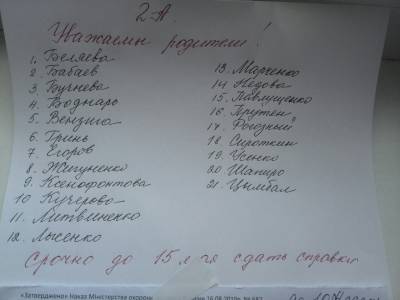 2-А.
Уважаемые родители!
1. Беляева
2. Бабаев
3. Бугнева
4. Боднарь
5. Вензига
6. Гринь
7. Егоров
8. Жигуненко
9. Ксенофонтова
10 Кучерово
11. Литвиненко
12. Лысенко
13. Марченко
14 Недова
15. Павлущенко
16 Прутен
17. Рогозный
18 Сироткин
19. Усенко
20 Шапиро
21. Цымбал
Срочно до 15 сдать справки
«Затверджено» Наказ Міністерства охорони